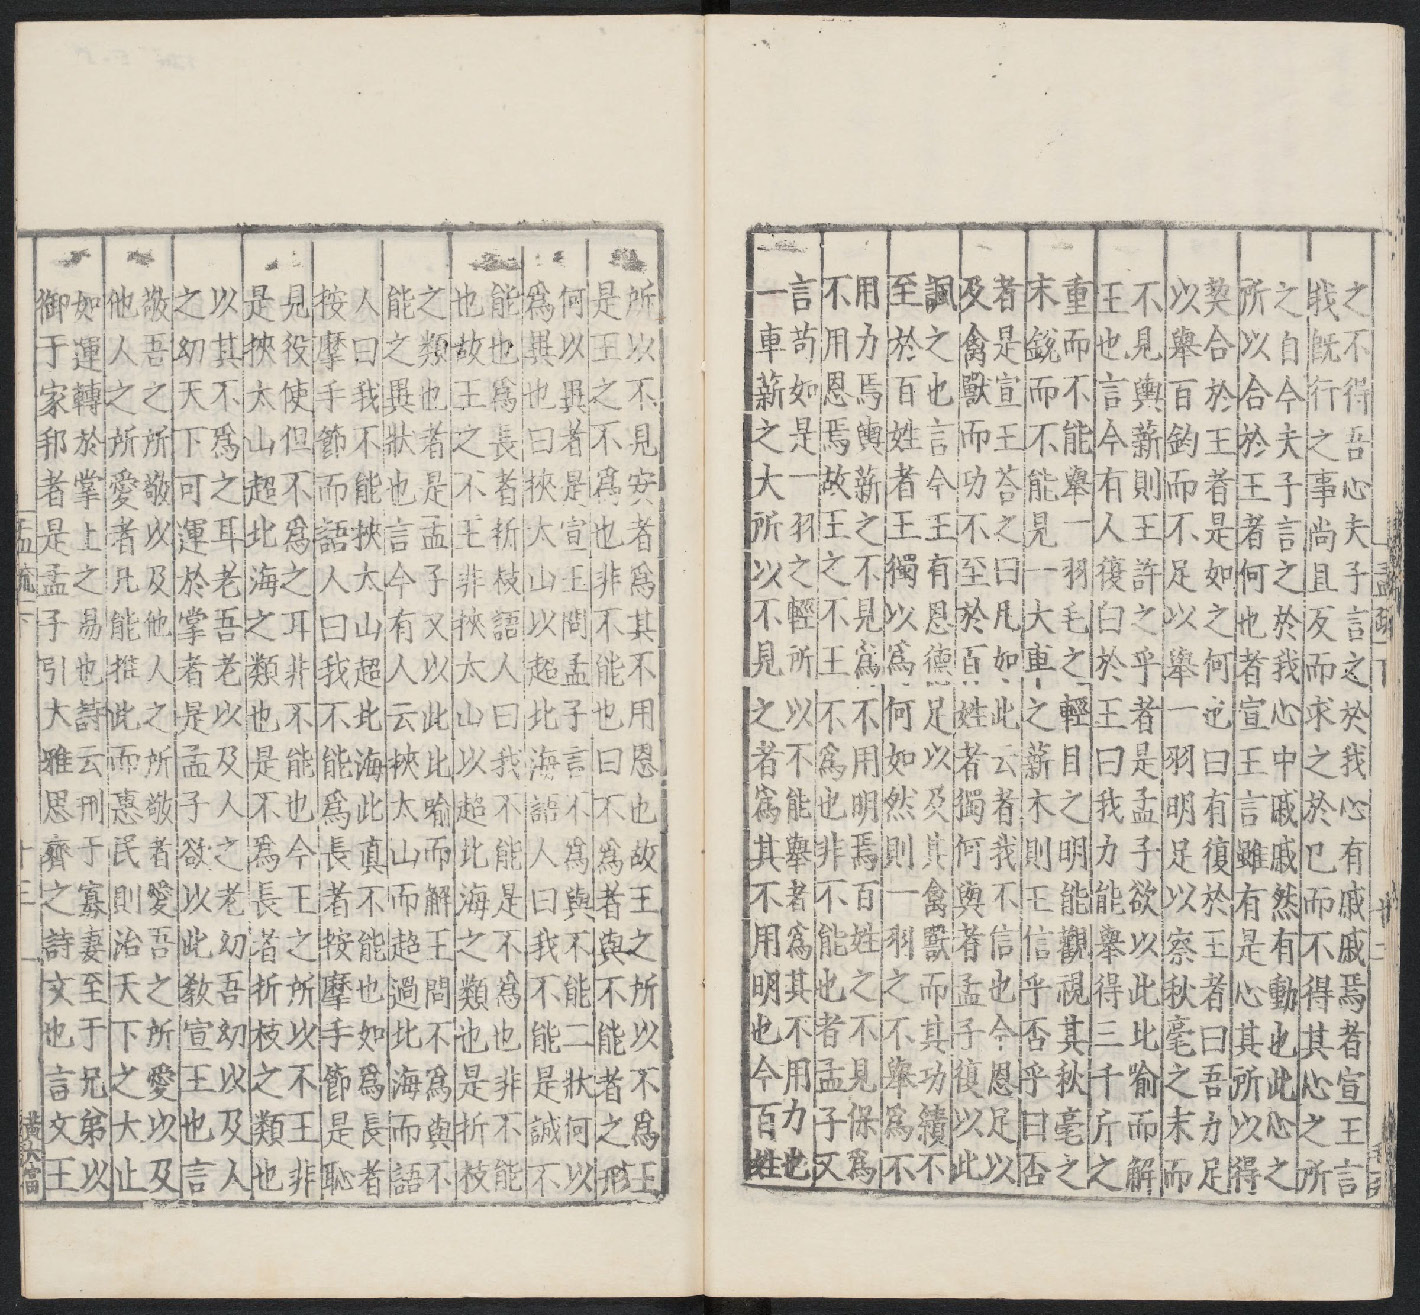 之不得吾心夫子言之於我心有戚戚焉者宣王言
我既行之事尚且反而求之於已而不得其心之所
之自今夫子言之於我心中戚戚然有動也此心之
所以合於王者何也者宣王言雖有是心其所以得
契合於王者是如之何也曰有復於王者曰吾力足
以舉百鈞而不足以舉一羽明足以察秋毫之末而
不見輿薪則王許之乎者是孟子欲以此比喻而解
王也言今有人復白於王曰我力能舉得三千斤之
重而不能舉一羽毛之輕目之明能觀視其秋毫之
末銳而不能見一大車之薪木則王信乎否乎曰否
者是宣王荅之曰凡如此云者我不信也今恩足以
及禽獸而功不至於百姓者獨何與者孟子復以此
諷之也言今王有恩德足以及其禽獸而其功績不
至於百姓者王獨以爲何如然則一羽之不舉爲不
用力焉輿薪之不見爲不用明焉百姓之不見保爲
不用恩焉故王之不王不爲也非不能也者孟子又
言苟如是一羽之輕所以不能舉者爲其不用力也
一車薪之大所以不見之者爲其不用明也今百姓
所以不見安者爲其不用恩也故王之所以不爲王
是王之不爲也非不能也曰不爲者與不能者之形
何以異者是宣王問孟子言不爲與不能二狀何以
爲異也曰挾太山以超北海語人曰我不能是誠不
能也爲長者折枝語人曰我不能是不爲也非不能
也故王之不王非挾太山以超北海之類也是折枝
之類也者是孟子又以此比喻而解王問不爲與不
能之異狀也言今有人云挾太山而超過北海而語
人曰我不能挾太山超北海此真不能也如爲長者
按摩手節而語人曰我不能爲長者按摩手節是恥
見役使但不爲之耳非不能也今王之所以不王非
是挾太山超北海之類也是不爲長者折枝之類也
以其不爲之耳老吾老以及人之老幼吾幼以及人
之幼天下可運於掌者是孟子欲以此敎宣王也言
敬吾之所敬以及他人之所敬者愛吾之所愛以及
他人之所愛者凡能推此而惠民則治天下之大止
如運轉於掌上之易也詩云刑于寡妻至于兄弟以
御于家邦者是孟子引大雅思齊之詩文也言文王
孟疏一下
十三